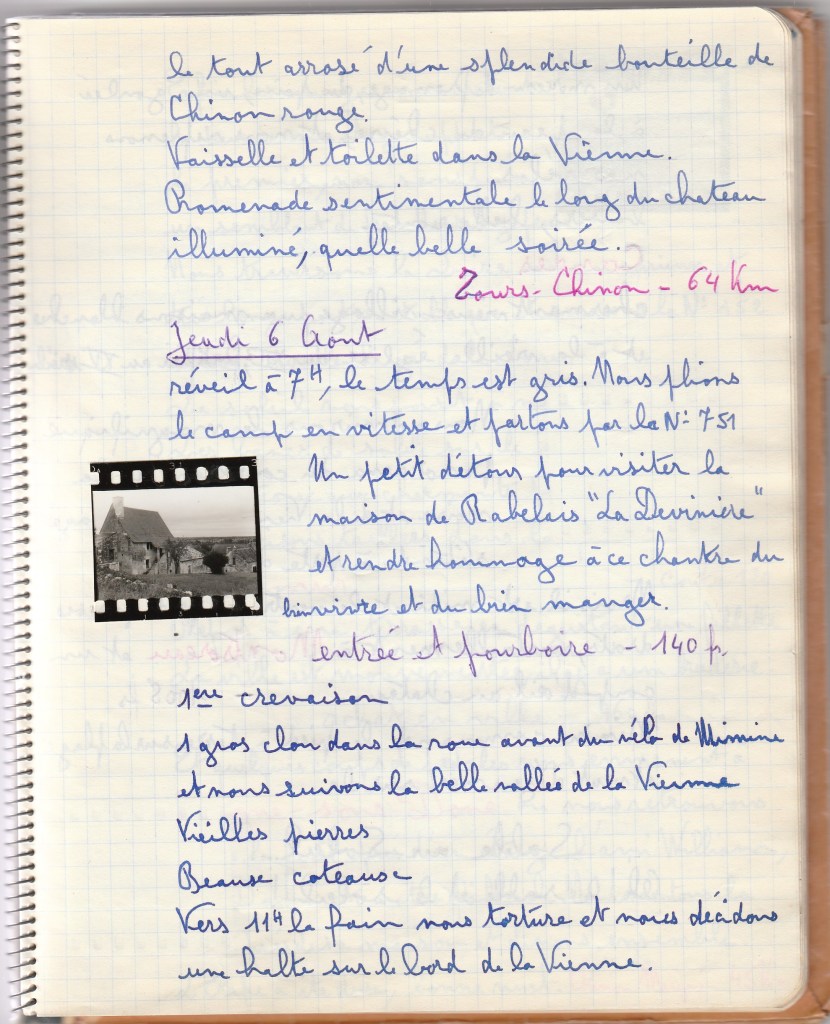 le tout arrosé d'une splendide bouteille de
Chinon rouge.
Vaisselle et toilette dans la Vienne.
Promenade sentimentale le long du chateau
illuminé, quelle belle soirée.
Tours - Chinon - 64 Km
Jeudi 6 Aout
réveil à 7H, le temps est gris. Nous plions
le camp en vitesse et partons par la N: 751
Un petit détour pour visiter la
maison de Rabelais "La Devinière"
et rendre hommage à ce chantre du
bien vivre et du bien manger.
entrée et pourboire - 140 f.
1ère crevaison
1 gros clou dans la roue avant du vélo de Mimine
et nous suivons la belle vallée de la Vienne
Vieilles pierres
Beaux coteaux
Vers 11H la faim nous torture et nous décidons
une halte sur le bord de la Vienne.